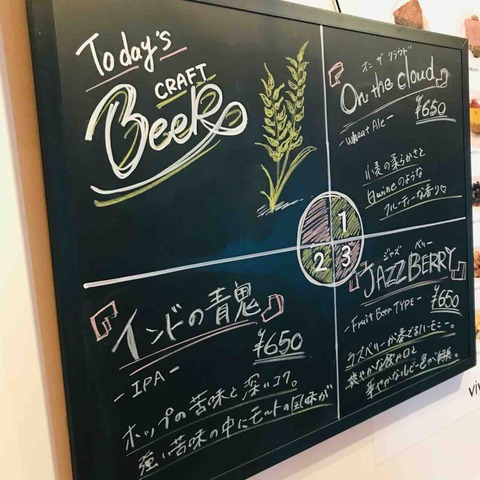 Today's
CRAFT
Beer
オン ザ クラウド
『On the cloud』
¥650
-Wheat Ale-
小麦の柔らかさと
白wineのような
フルーティーな香り♡
1
2
3
『インドの青鬼』
¥650
-IPA-
ホップの苦味と深いコク。
強い苦味の中にモルトの風味が
ジャズ ベリー
『JAZZ BERRY』
¥650
-Fruit Beer TYPE-
ラズベリーが奏でるハーモニー。
爽やかな飲み口と
華やかなルビー色が特長。